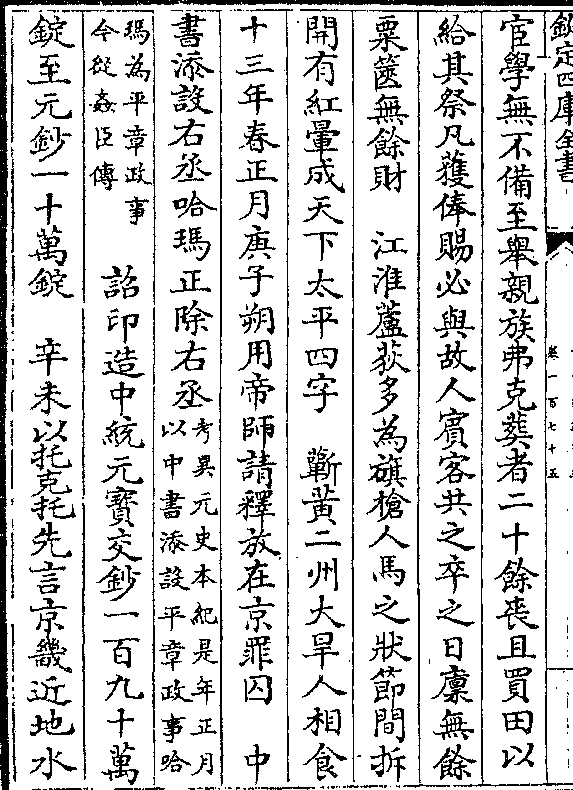 欽定四庫全書
卷一百七十五
宦學無不備至舉親族弗克葬者二十餘喪且買田以
給其祭凡獲俸賜必與故人賓客共之卒之日廪無餘
粟篋無餘財　江淮蘆荻多為旗槍人馬之狀節間拆
開有紅暈成天下太平四字　蘄黃二州大旱人相食
十三年春正月庚子朔用帝師請釋放在京罪囚　中
書添設右丞哈瑪正除右丞考異元史本紀是年正月以中書添設平章政事哈
瑪為平章政事今從姦臣傳　詔印造中統元寶交鈔一百九十萬
錠至元鈔一十萬錠　辛未以托克托先言京畿近地水